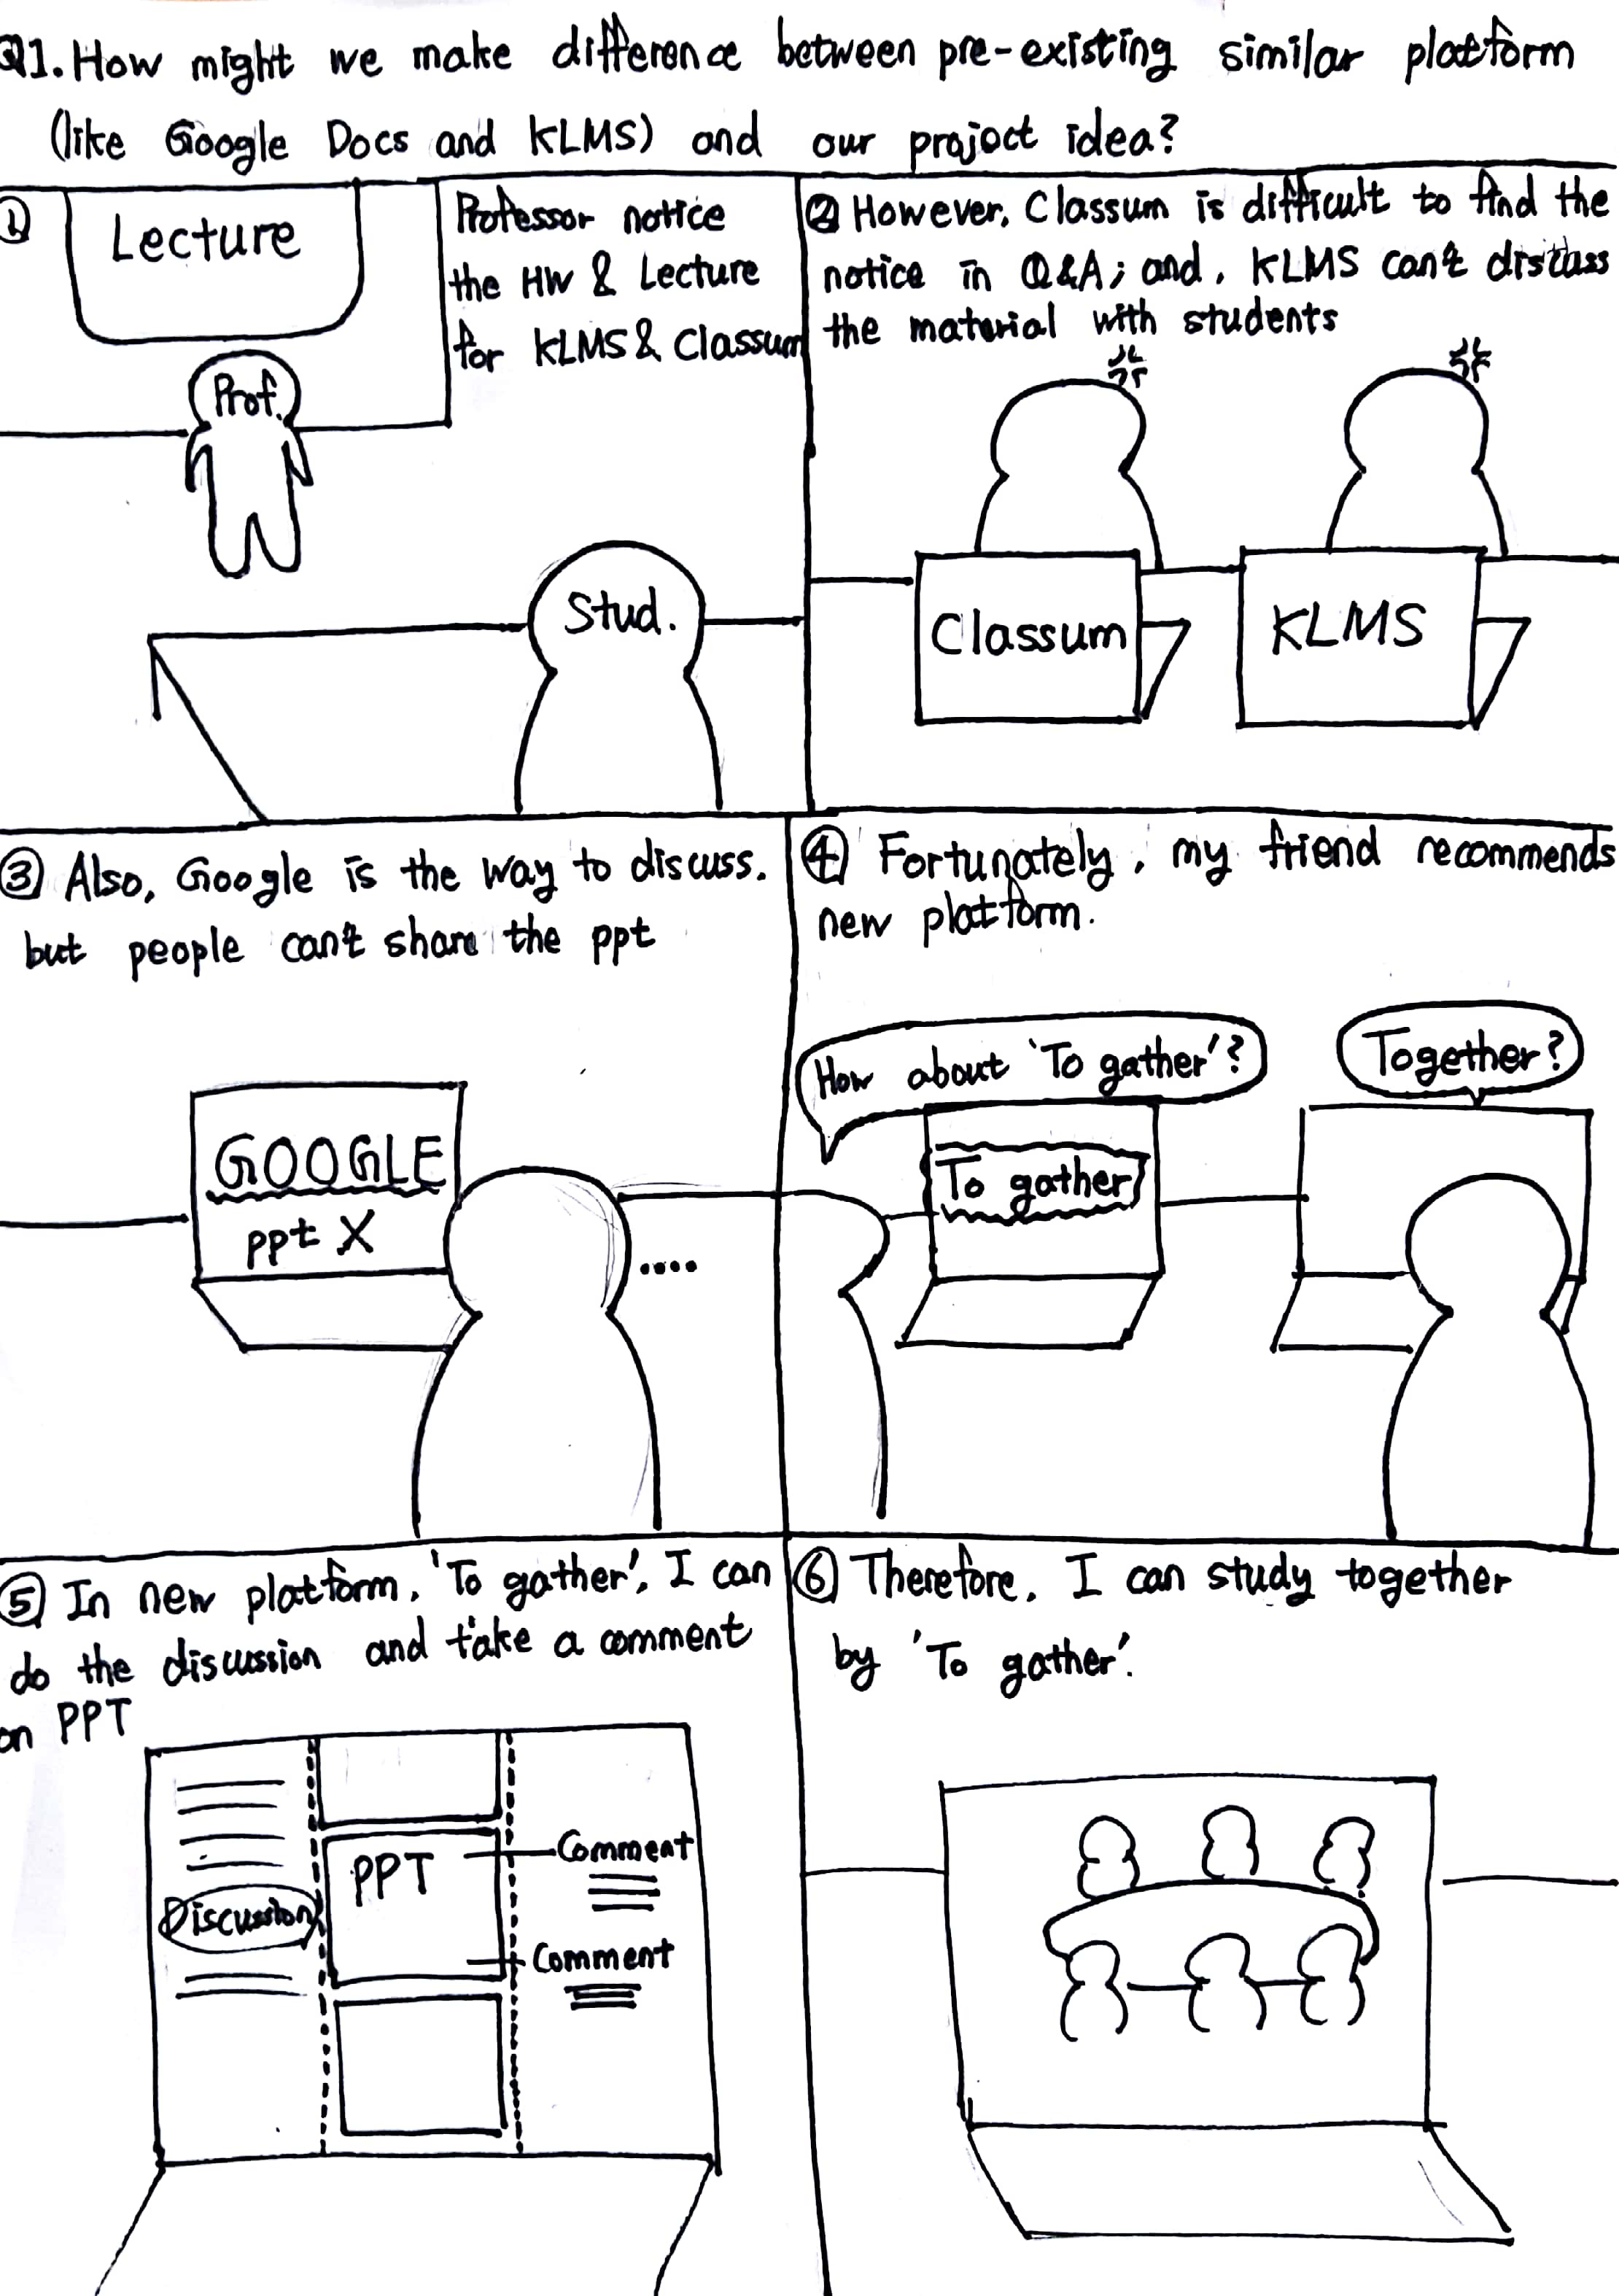 Q1. How might we make difference between pre-existing similar platform
(like Google Docs and KLMS) and our project idea?
①
Lecture
Professor notice
the HW & Lecture
for KLMS & Classum
Prof.
Stud.
② However, Classum is difficult to find the
notice in Q&A; and, KLMS can't discuss
the material with students
Classum
KLMS
③ Also, Google is the way to discuss.
but people can't share the ppt
GOOGLE
ppt X
....
④ Fortunately, my friend recommends
new platform.
How about 'To gather'?
Together?
To gather
⑤ In new platform, 'To gather', I can
do the discussion and take a comment
on PPT
Discussion
PPT
Comment
Comment
⑥ Therefore, I can study together
by 'To gather'.